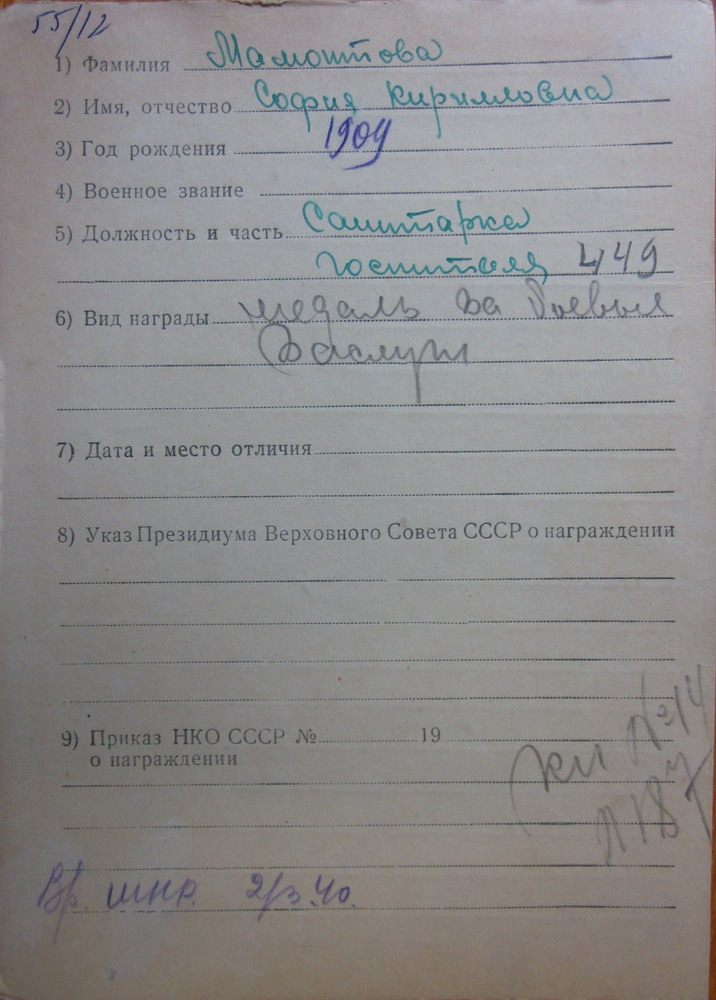 55/12
1) Фамилия Мамонтова
2) Имя, отчество София Кирилловна
3) Год рождения 1909
4) Военное звание
5) Должность и часть Санитарка
госпиталя 449
6) Вид награды медаль За боевые
Заслуги
7) Дата и место отличия
8) Указ Президиума Верховного Совета СССР о награждении
9) Приказ НКО СССР № 19
о награждении
кл №14
Вр. 2/3.40.